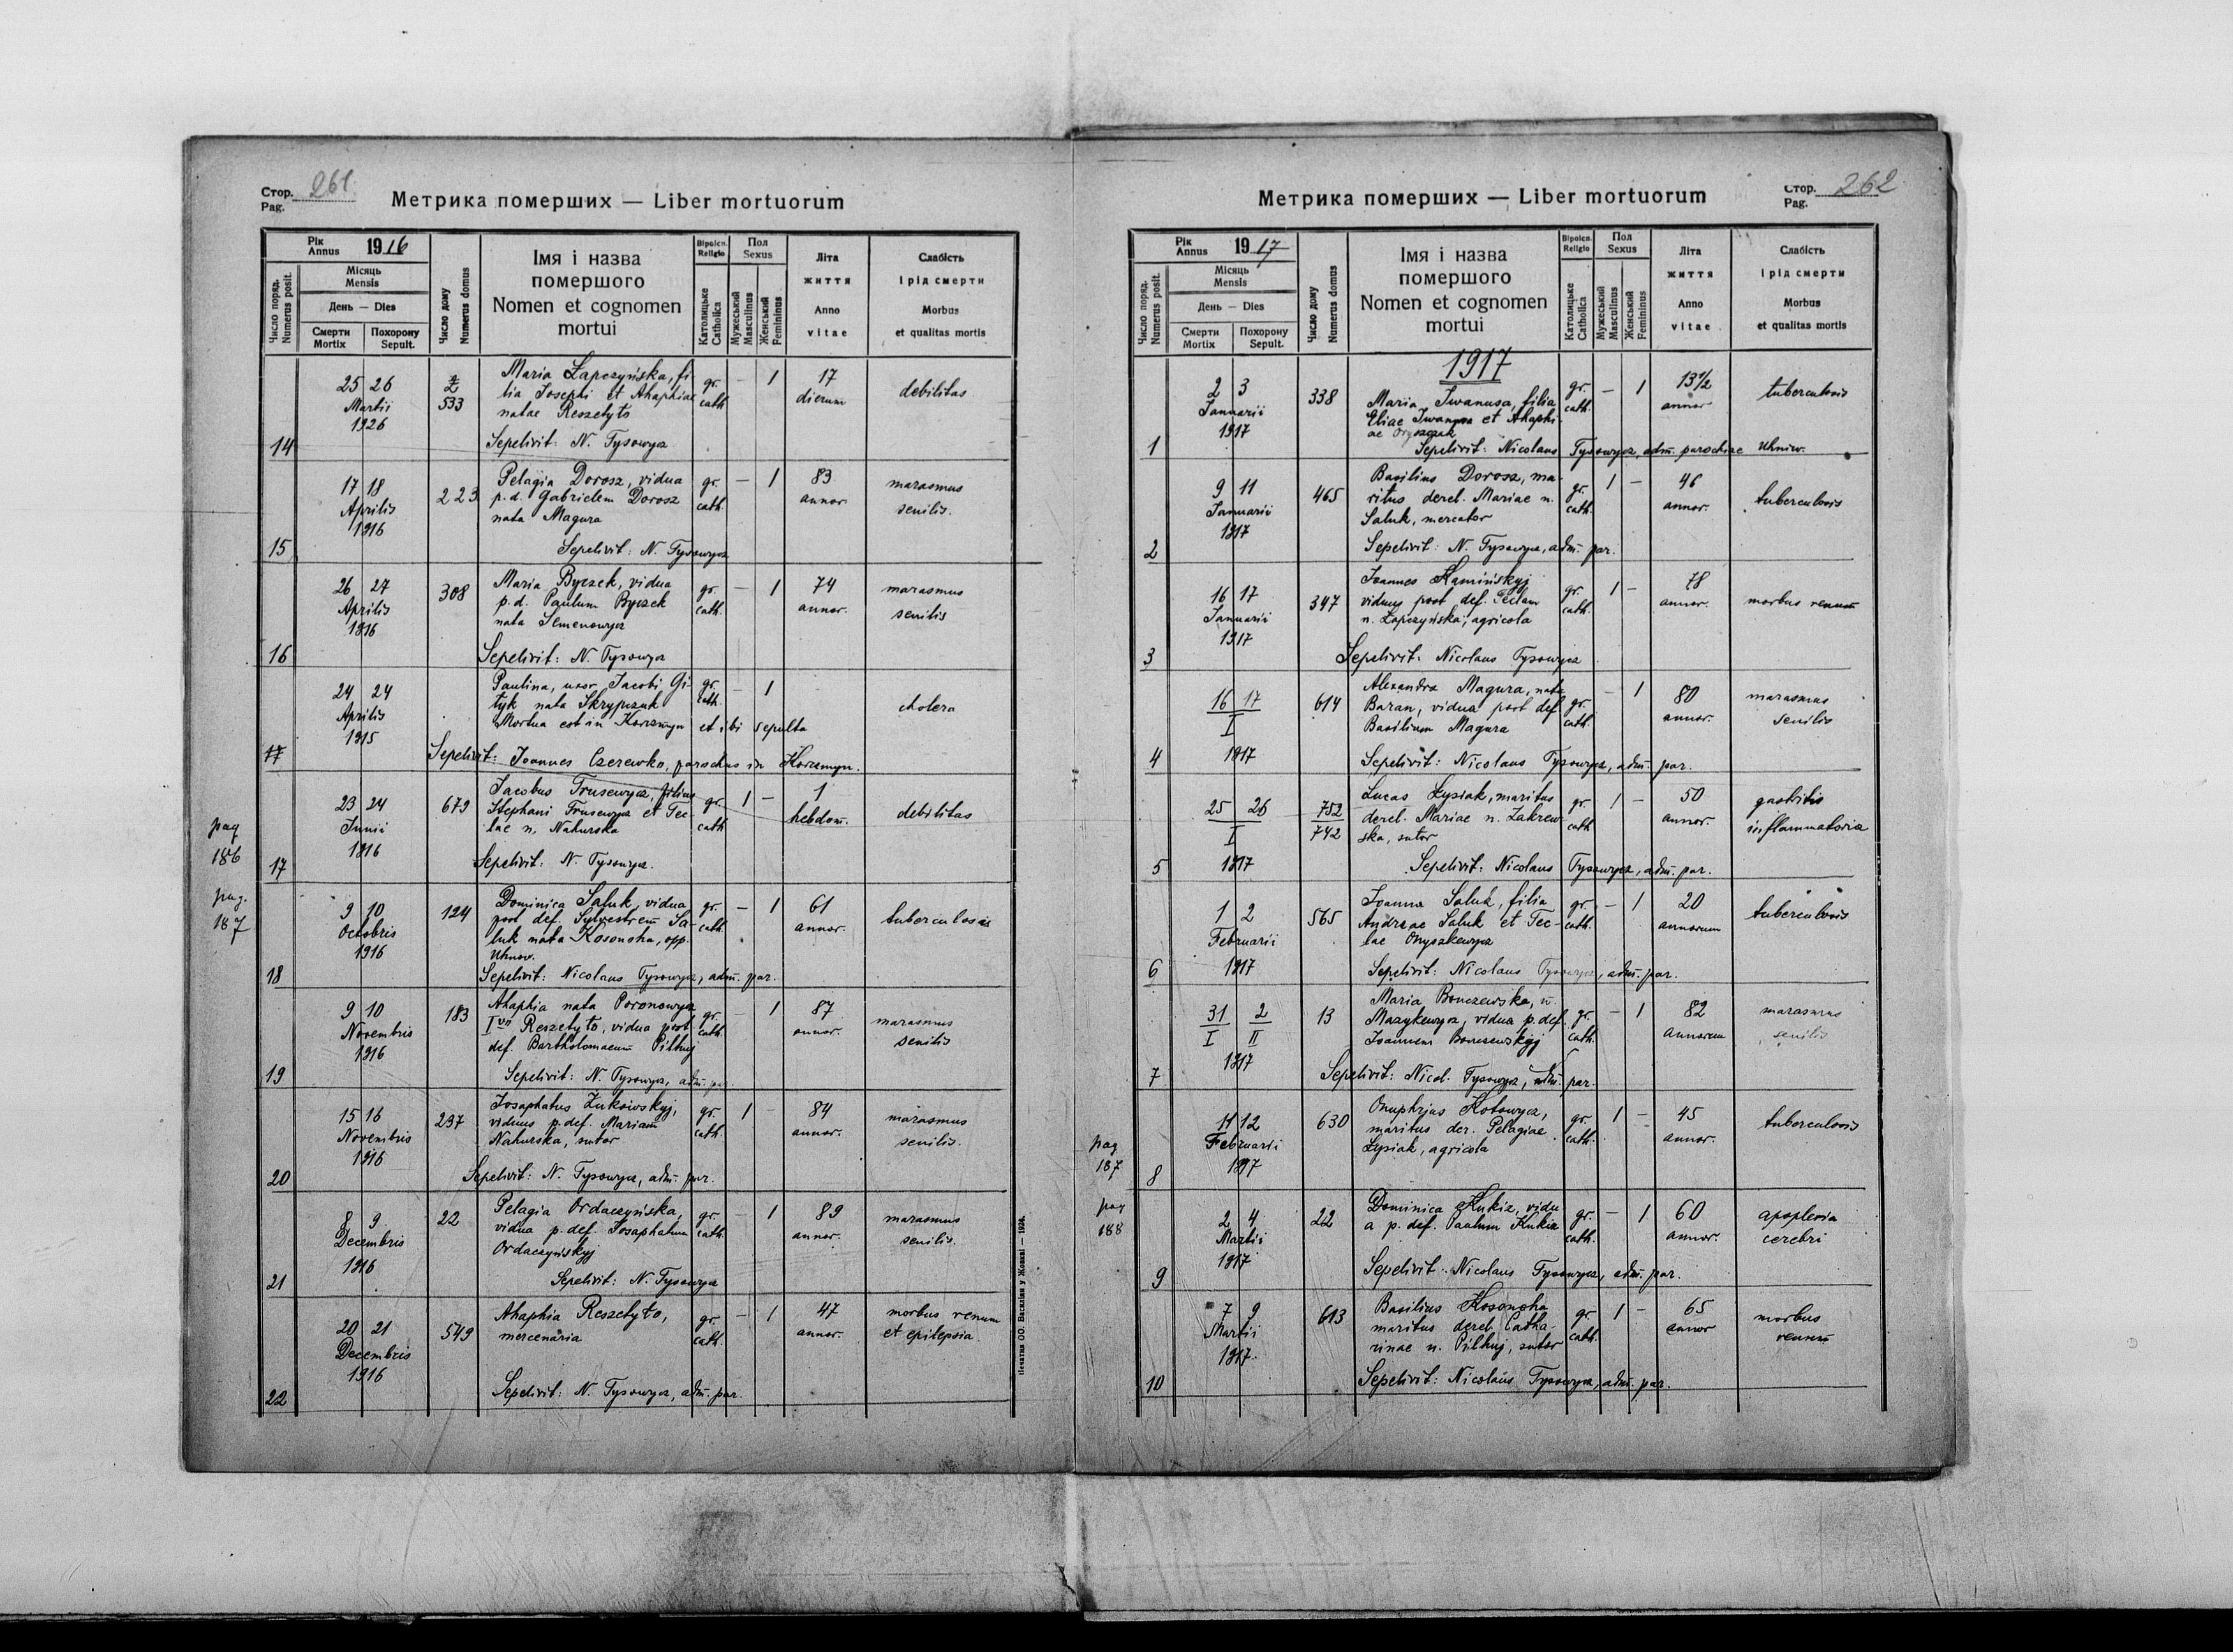 Стор. 261
Pag.
Метрика померших — Liber mortuorum
Рік Annus 1916
Число поряд. Numerus posit.
Місяць Mensis
День — Dies
Смерти Mortix
Похорону Sepult.
Число дому Numerus domus
Імя і назва
померщого
Nomen et cognomen
mortui
Віроісп. Religio
Католицьке Catholica
Пол Sexus
Мужеський Masculinus
Женський Femininus
Літа
життя
Anno
vitae
Слабість
і рід смерти
Morbus
et qualitas mortis
14
25 26
Martii
1926
533
Maria Łapczyńska, fi-
lia Josephi et Ahaphiae
natae Reszetyło
gr. cath.
— 1
17
dierum
debilitas
Sepelivit: N. Tysowycz
15
17 18
Aprilis
1916
223
Pelagia Dorosz, vidua
p. d. Gabrielem Dorosz
nata Magura
gr. cath.
— 1
83
annor.
marasmus
senilis.
Sepelivit: N. Tysowycz
16
26 27
Aprilis
1916
308
Maria Byczek, vidua
p. d. Paulum Byczek
nata Semenowycz
gr. cath.
— 1
74
annor.
marasmus
senilis
Sepelivit: N. Tysowycz
17
24 24
Aprilis
1915
Paulina, uxor Jacobi Gi-
tyk nata Skrypczuk
Mortua est in Korczmyn et ibi sepulta
gr. cath.
— 1
cholera
Sepelivit: Joannes Czerewko, parochus in Korczmyn.
pag
186
17
23 24
Junii
1916
679
Jacobus Trusewycz, filius
Stephani Trusewycz et Tec-
lae n. Nahurska
gr. cath
1 —
1
hebdom.
debilitas
Sepelivit: N. Tysowycz.
pag.
187
18
9 10
Octobris
1916
124
Dominica Saluk, vidua
post def. Sylvestrem Sa-
luk nata Kosonoha, opp.
Uhnow.
gr. cath.
— 1
61
annor.
tuberculosis
Sepelivit: Nicolaus Tysowycz, adm. par.
19
9 10
Novembris
1916
183
Ahaphia nata Poronowycz
I vo Reszetyło, vidua post
def. Bartholomaeum Pilhuj
gr. cath.
— 1
87
annor.
marasmus
senilis
Sepelivit: N. Tysowycz, adm. par.
20
15 16
Novembris
1916
237
Josaphatus Żukowskyj,
viduus p. def. Mariam
Nahurska, sutor
gr. cath.
1 —
84
annor.
marasmus
senilis.
Sepelivit: N. Tysowycz, adm. par.
21
8 9
Decembris
1916
22
Pelagia Ordaczyńska,
vidua p. def. Josaphatum
Ordaczyńskyj
gr. cath.
— 1
89
annor.
marasmus
senilis.
Sepelivit: N. Tysowycz
22
20 21
Decembris
1916
549
Ahaphia Reszetyło,
mercenaria
gr. cath.
— 1
47
annor.
morbus renum
et epilepsia.
Sepelivit: N. Tysowycz, adm. par.
Печатня ОО. Василіян у Жовкві — 1926.
Метрика померших — Liber mortuorum
Стор. 262
Pag.
Рік Annus 1917
Число поряд. Numerus posit.
Місяць Mensis
День — Dies
Смерти Mortix
Похорону Sepult.
Число дому Numerus domus
Імя і назва
померщого
Nomen et cognomen
mortui
Віроісп. Religio
Католицьке Catholica
Пол Sexus
Мужеський Masculinus
Женський Femininus
Літа
життя
Anno
vitae
Слабість
і рід смерти
Morbus
et qualitas mortis
1917
1
2 3
Januarii
1917
338
Maria Iwanusa, filia
Eliae Iwanusa et Ahaphi-
ae Oryszczak
gr. cath.
— 1
13 1/2
annor
tuberculosis
Sepelivit: Nicolaus Tysowycz, adm. parochiae Uhniw.
2
9 11
Januarii
1917
465
Basilius Dorosz, ma-
ritus derel. Mariae n.
Saluk, mercator
gr. cath.
1 —
46
annor.
tuberculosis
Sepelivit: N. Tysowycz, adm. par.
3
16 17
Januarii
1917
347
Joannes Kamińskyj
viduus post def. Teclam
n. Łapczyńska, agricola
gr. cath.
1 —
78
annor.
morbus renum
Sepelivit: Nicolaus Tysowycz
4
16 17
I
1917
614
Alexandra Magura, nata
Baran, vidua post def.
Basilium Magura
gr. cath.
— 1
80
annor.
marasmus
senilis
Sepelivit: Nicolaus Tysowycz, adm. par.
5
25 26
I
1917
752
742
Lucas Łysiak, maritus
derel. Mariae n. Zakrew-
ska, sutor
gr. cath
1 —
50
annor.
gastritis
inflammatoria
Sepelivit: Nicolaus Tysowycz, adm. par.
6
1 2
Februarii
1917
565
Joanna Saluk, filia
Andreae Saluk et Tec-
lae Onyszkewycz
gr. cath.
— 1
20
annorum
tuberculosis
Sepelivit: Nicolaus Tysowycz, adm. par.
7
31 2
I II
1917
13
Maria Bonczewska, n.
Mazykewycz, vidua p. def.
Joannem Bonczewskyj
gr. cath.
— 1
82
annorum
marasmus
senilis
Sepelivit: Nicol. Tysowycz, adm. par.
pag
187
8
11 12
Februarii
1917
630
Onuphrjus Kotowycz,
maritus der. Pelagiae
Łysiak, agricola
gr. cath.
1 —
45
annor.
tuberculosis
pag
188
9
2 4
Martii
1917
22
Dominica Kukiz, vidu-
a p. def. Paulum Kukiz
gr. cath.
— 1
60
annor.
apoplexia
cerebri
Sepelivit: Nicolaus Tysowycz, adm. par.
10
7 9
Martii
1917.
613
Basilius Kosonoha
maritus derel. Catha-
rinae n. Pilhuj, sutor
gr. cath.
1 —
65
annor
morbus
renum
Sepelivit: Nicolaus Tysowycz, adm. par.